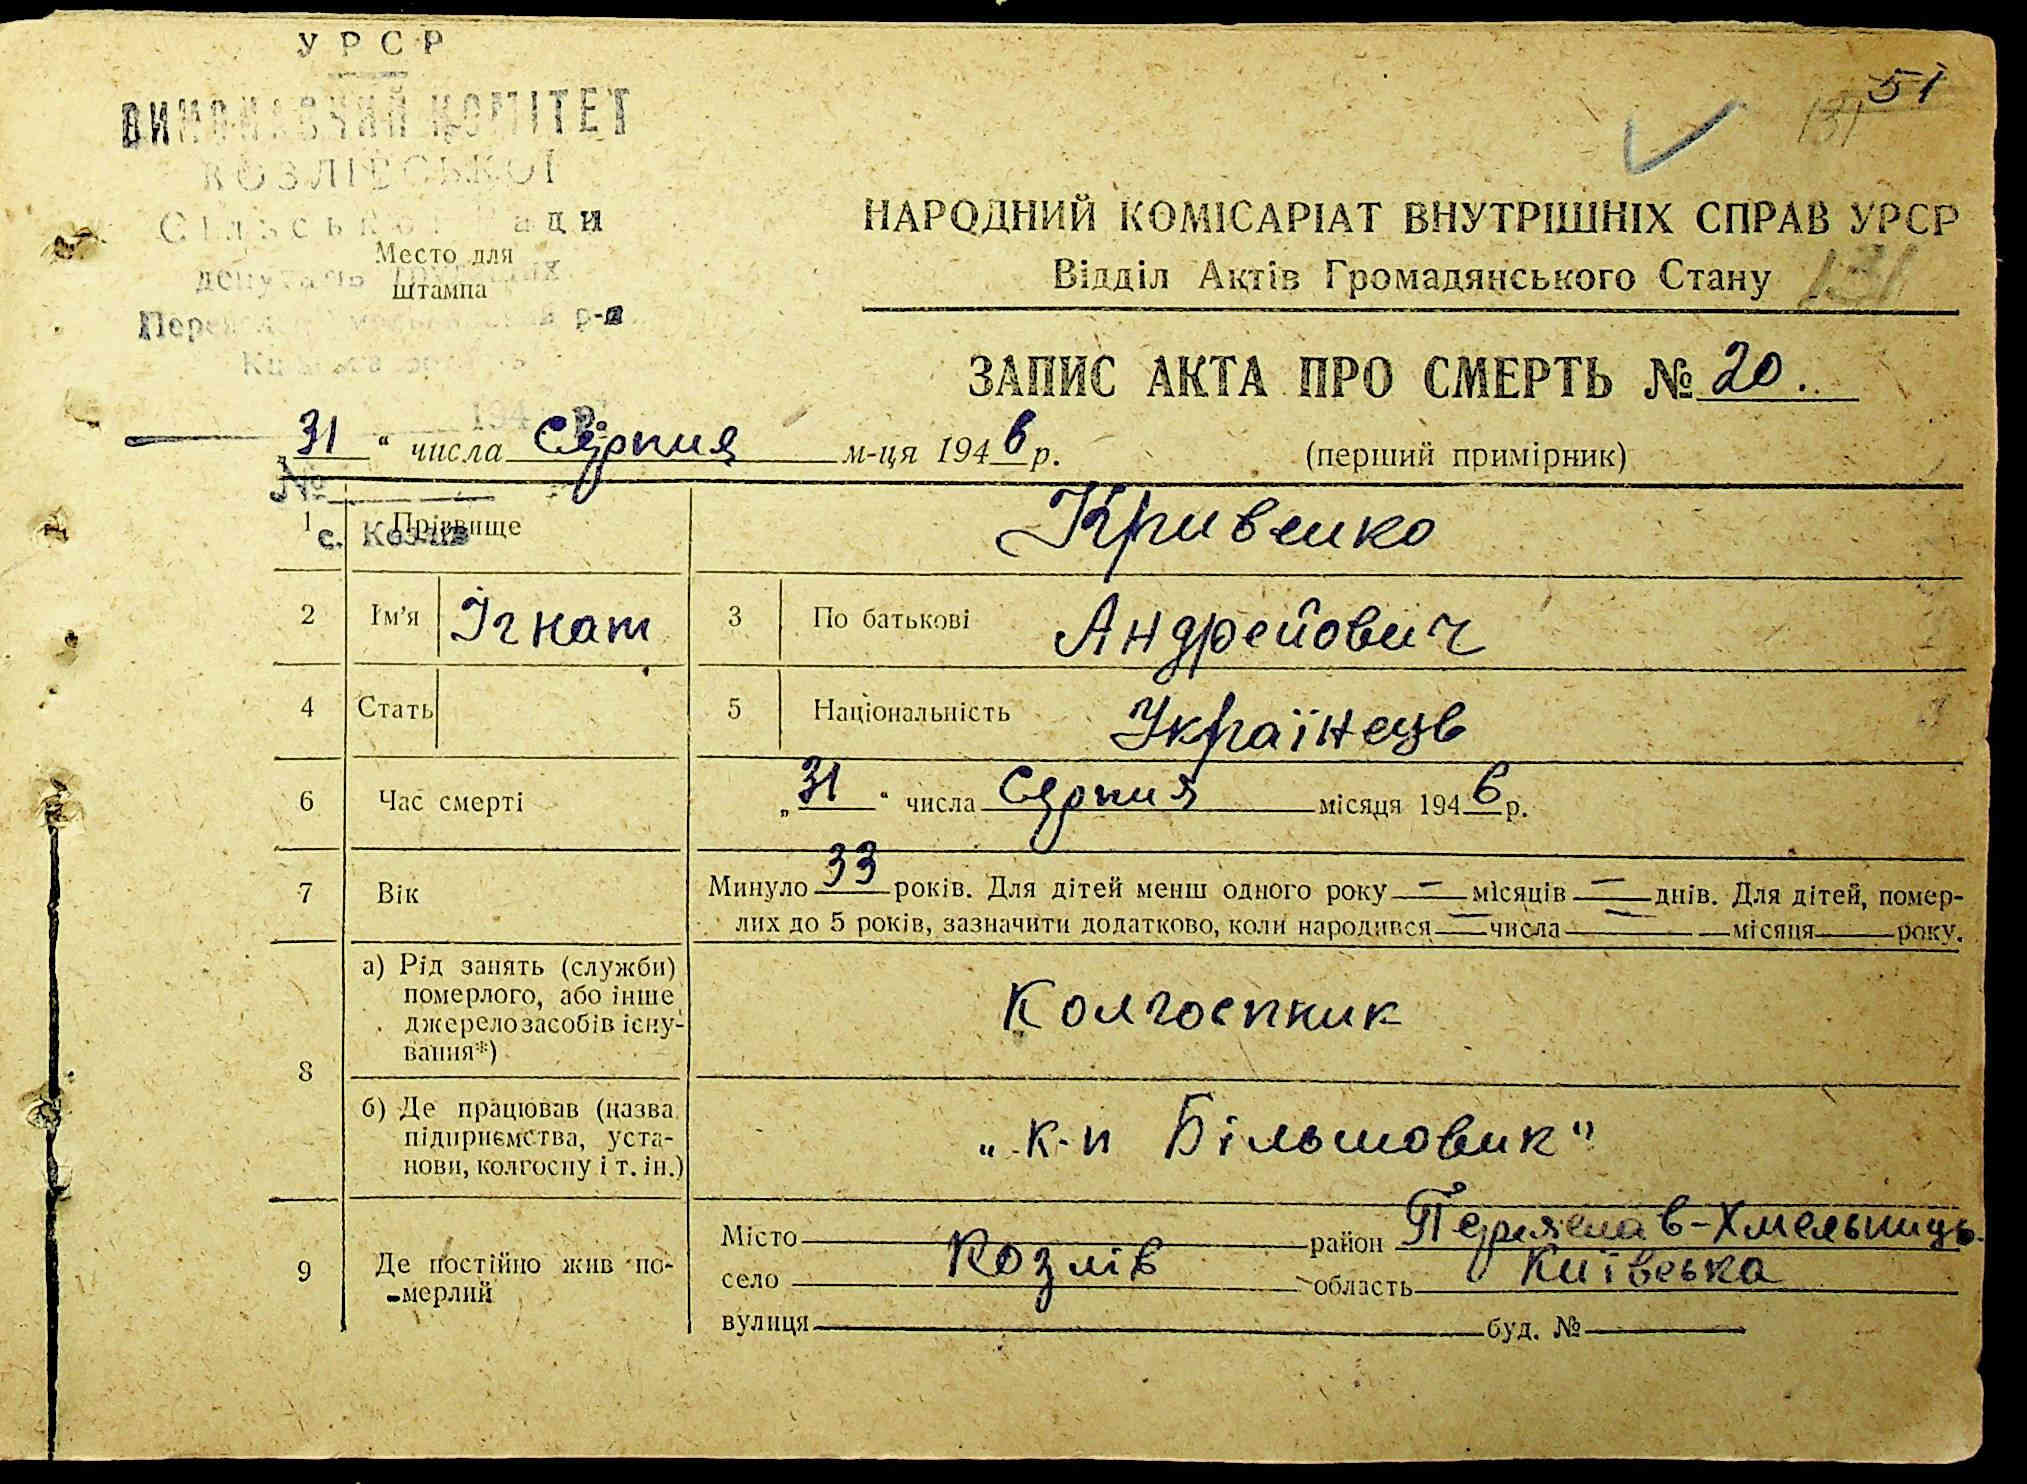 УРСР
ВИКОНАВЧИЙ КОМІТЕТ
КОЗЛІВСЬКОЇ
Сільської Ради
депутатів трудящих
Место для
штампа
р-н
194 р.
№
с. Козлів
51
131
131
НАРОДНИЙ КОМІСАРІАТ ВНУТРІШНІХ СПРАВ УРСР
Відділ Актів Громадянського Стану
ЗАПИС АКТА ПРО СМЕРТЬ № 20.
31 " числа Серпня м-ця 1946 р.
(перший примірник)
1 Прізвище Кривенко
2 Ім'я Ігнат 3 По батькові Андрейович
4 Стать 5 Національність Українець
6 Час смерті „31" числа Серпня місяця 1946 р.
7 Вік Минуло 33 років. Для дітей менш одного року — місяців — днів. Для дітей, помер-
лих до 5 років, зазначити додатково, коли народився — числа — місяця — року.
8 а) Рід занять (служби)
померлого, або інше
джерело засобів існу-
вання*)
Колгоспник
б) Де працював (назва
підприємства, уста-
нови, колгоспу і т. ін.)
„к-п Більшовик"
9 Де постійно жив по-
мерлий
Місто район Переяслав-Хмельниць.
село Козлів область Київська
вулиця буд. №